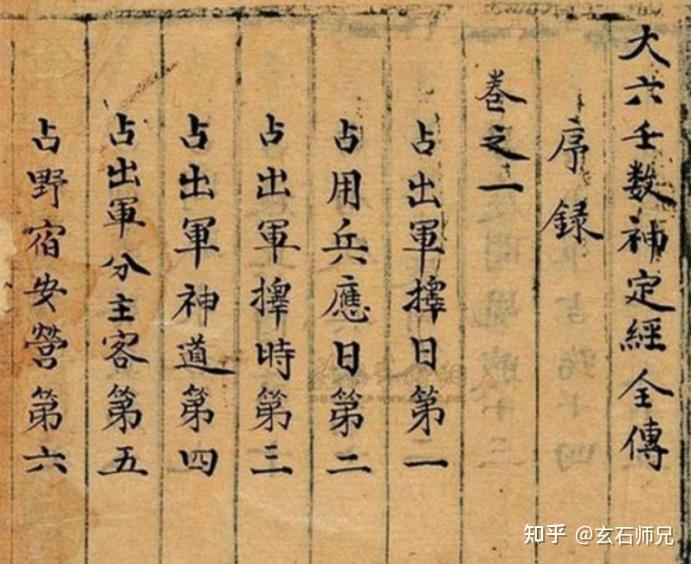 大六壬数神定經全傳
序録
卷之一
占出軍擇日第一
占用兵應日第二
占出軍擇時第三
占出軍神道第四
占出軍分主客第五
占野宿安營第六
知乎 @玄石师兄